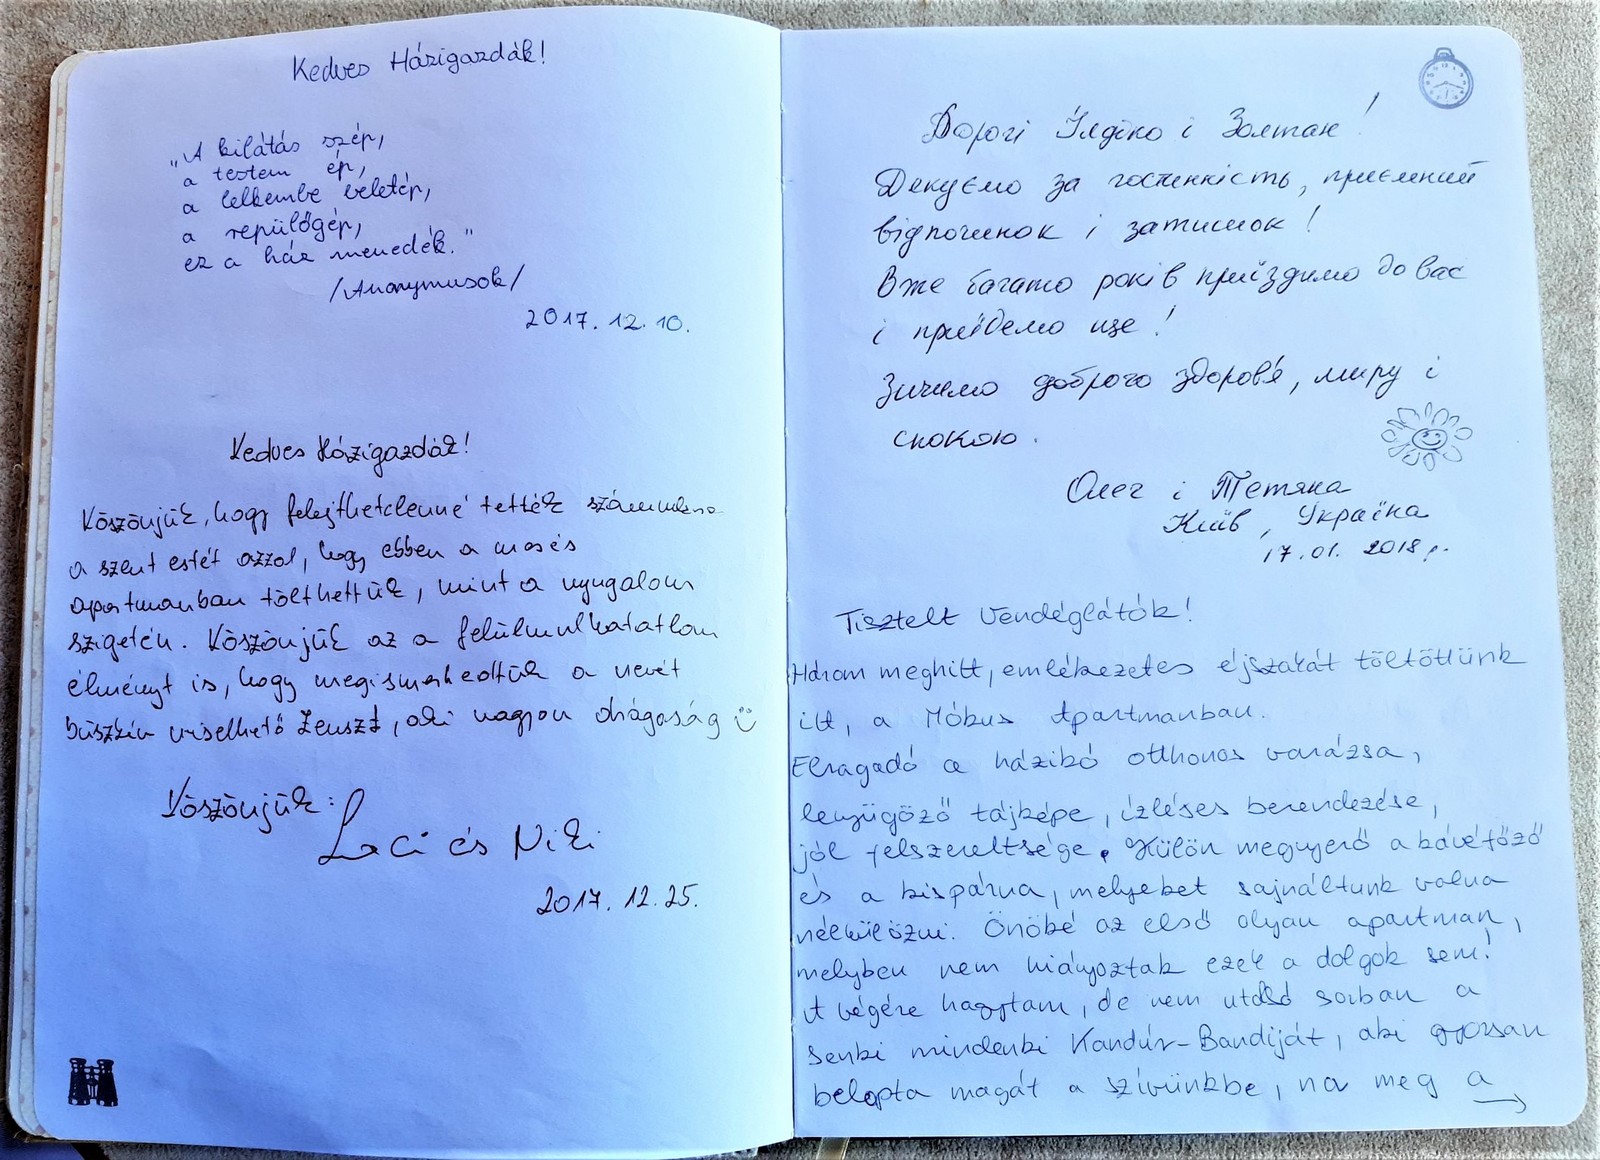 Kedves Házigazdák!
„A kilátás szép,
a testem ép,
a lelkembe beletép,
a repülőgép,
ez a ház menedék."
/Anonymusok/
2017. 12. 10.
Kedves Házigazdák!
Köszönjük, hogy felejthetetlenné tették számunkra
a szent estét azzal, hogy ebben a mesés
apartmanban tölthettük, mint a nyugalom
szigetén. Köszönjük az a felülmulhatatlan
élményt is, hogy megismerkedtünk a nevét
büszkén viselhető Zeuszt, aki nagyon drágaság
Köszönjük:
Laci és Niki
2017. 12. 25.
Дорогі Ілдіко і Золтан!
Дякуємо за гостинність, приємний
відпочинок і затишок!
Вже багато років приїздимо до вас
і приїдемо ще!
Зичимо доброго здоров'я, миру і
спокою.
Олег і Тетяна
Київ, Україна
17.01. 2018 р.
Tisztelt Vendéglátók!
Három meghitt, emlékezetes éjszakát töltöttünk
itt, a Móbus Apartmanban.
Elragadó a házikó otthonos varázsa,
lenyűgöző tájképe, ízléses berendezése,
jól felszereltsége. Külön megnyerő a kávéfőző
és a kispárna, melyeket sajnáltunk volna
nélkülözni. Önöké az első olyan apartman,
melyben nem hiányoztak ezek a dolgok sem!
A végére hagytam, de nem utolsó sorban a
senki mindenki Kandúr-Bandiját, aki gyorsan
belopta magát a szívünkbe, na meg a →